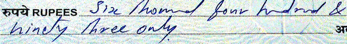 रुपये RUPEES Six thousand four hundred &
ninety three only अ